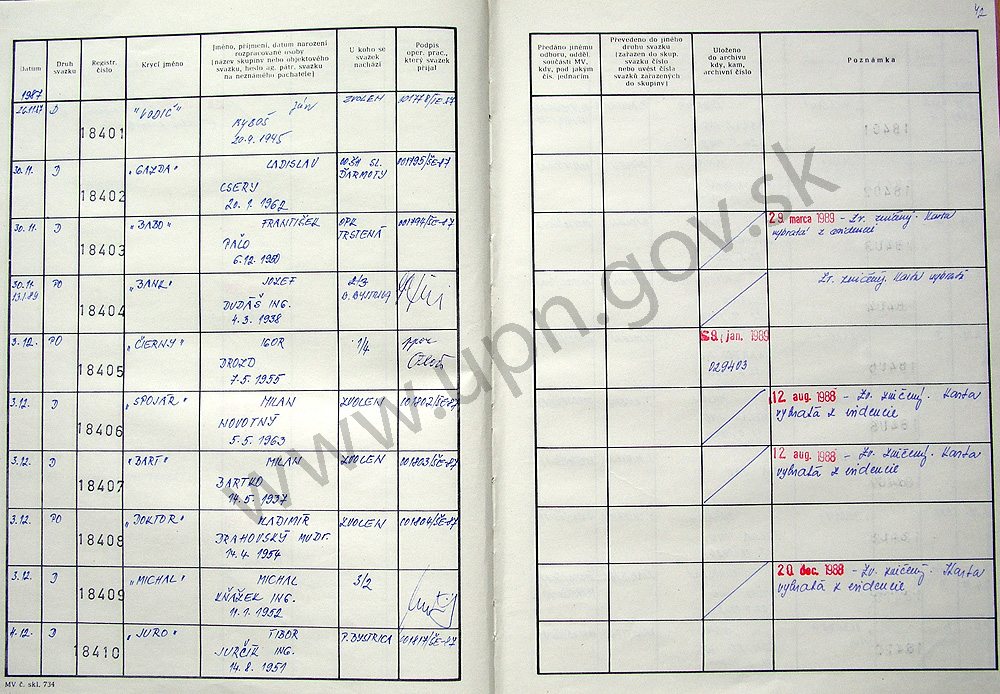 42
Datum
Druh svazku
Registr. číslo
Krycí jméno
Jméno, příjmení, datum narození
rozpracované osoby
(název skupiny nebo objektového
svazku, heslo ag. pátr. svazku
na neznámého pachatele)
U koho se
svazek
nachází
Podpis
oper. prac.,
který svazek
přijal
Předáno jinému
odboru, odděl.
součásti MV,
kdy, pod jakým
čís. jednacím
Převedeno do jiného
druhu svazku
(zařazen do skup.
svazku číslo
nebo uvést čísla
svazků zařazených
do skupiny)
Uloženo
do archivu
kdy, kam,
archivní číslo
Poznámka
1987
26.11.87 D 18401 "VODIČ" Ján
20.9.1945
ZVOLEN 001778/ŠE-87
30.11. D 18402 "GAZDA" LADISLAV
CSERY
20.1.1962
OO ŠTB SL.
ĎARMOTY 001795/ŠE-87
30.11. D 18403 "BABO" FRANTIŠEK
PAČO
6.12.1950
OPK
TRSTENÁ 001794/ŠE-87
29. marca 1989 - Zv. zničený. Karta
vybratá z evidencie
30.11.
13.1.89 PO 18404 "BANK" JOZEF
DUDÁŠ ING.
4.3.1938
2/3
B. BYSTRICA
Zv. zničený. Karta vybratá
3.12. PO 18405 "ČIERNY" IGOR
DROZD
7.5.1955
1/4
jan. 1989
029403
3.12. D 18406 "SPOJÁR" MILAN
NOVOTNÝ
5.5.1963
ZVOLEN 001802/ŠE-87
12. aug. 1988 - Zv. zničený. Karta
vybratá z evidencie
3.12. D 18407 "BART" MILAN
BARTKO
14.5.1937
ZVOLEN 001803/ŠE-87
12. aug. 1988 - Zv. zničený. Karta
vybratá z evidencie
3.12. PO 18408 "DOKTOR" VLADIMÍR
DRAHOVSKÝ MUDr.
14.4.1954
ZVOLEN 001804/ŠE-87
3.12. D 18409 "MICHAL" MICHAL
KŇAŽEK ING.
11.1.1952
3/2
20. dec. 1988 - Zv. zničený. Karta
vybratá z evidencie
4.12. D 18410 "JURO" TIBOR
JURČÍK ING.
14.8.1951
P. BYSTRICA 001817/ŠE-87
MV č. skl. 734
www.upn.gov.sk